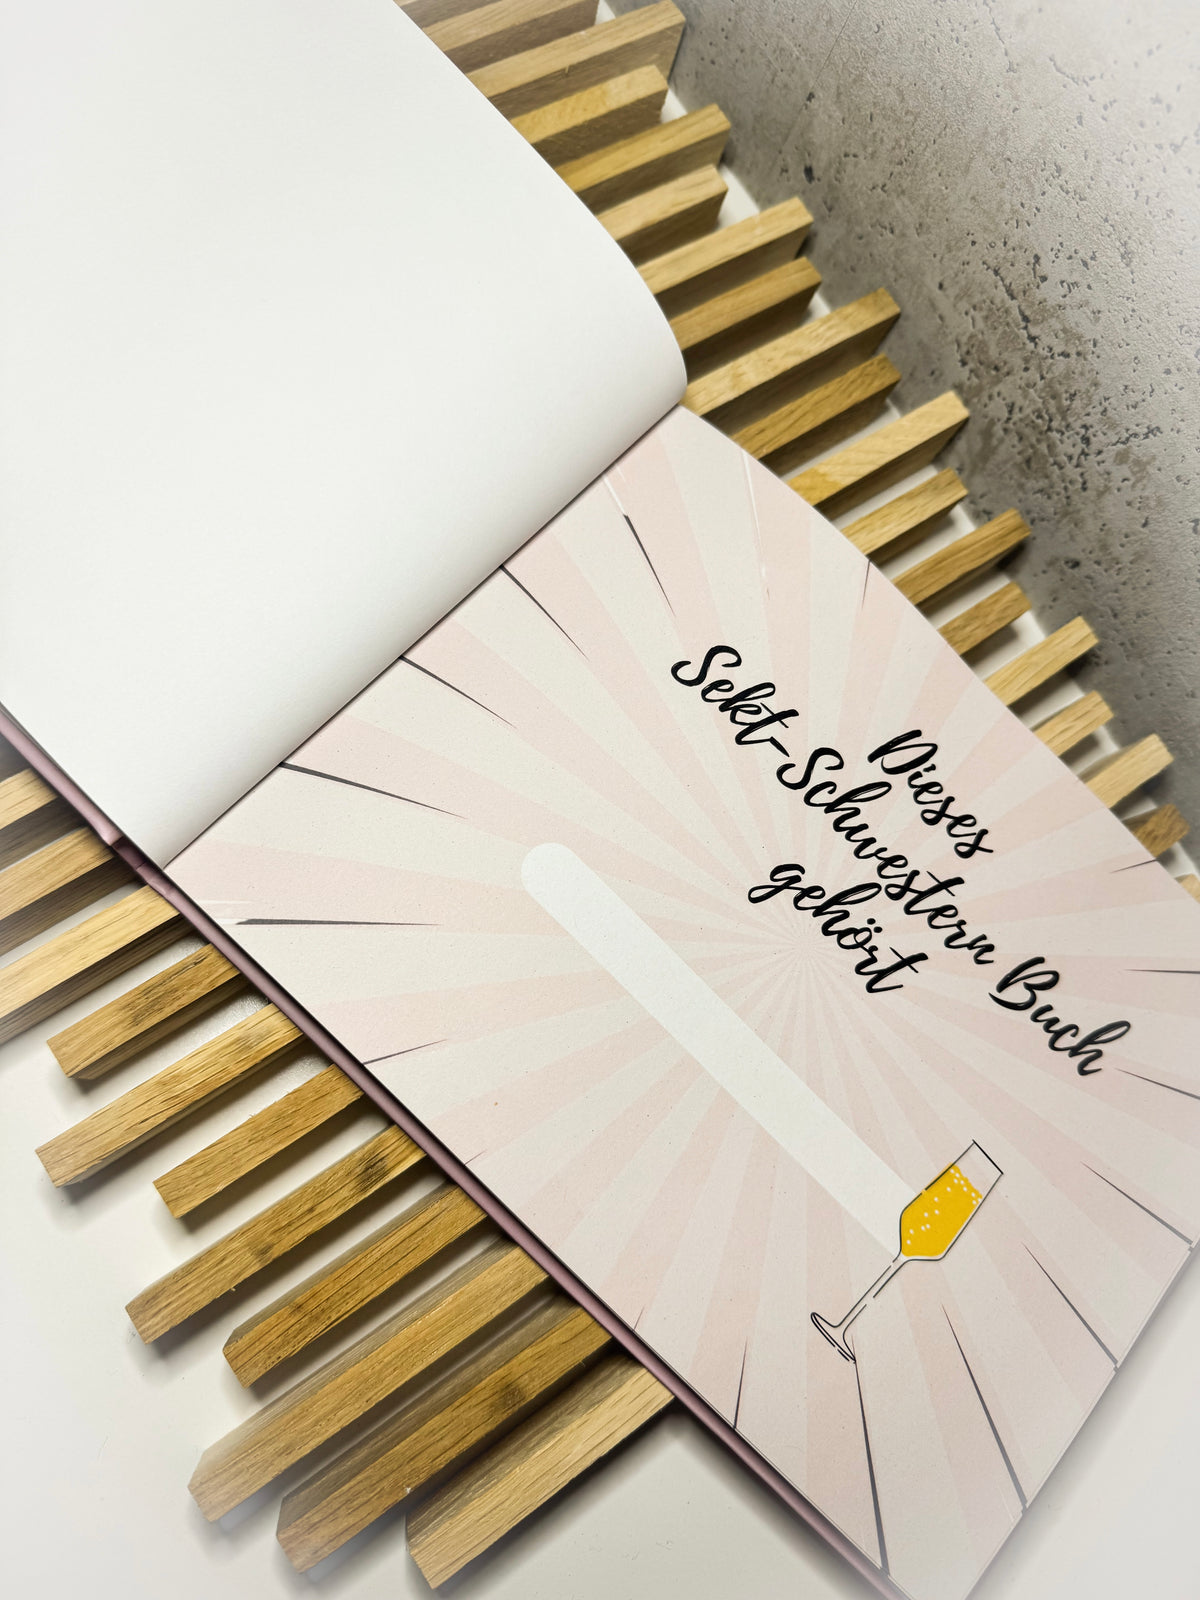 Dieses
Sekt-Schwestern Buch
gehört